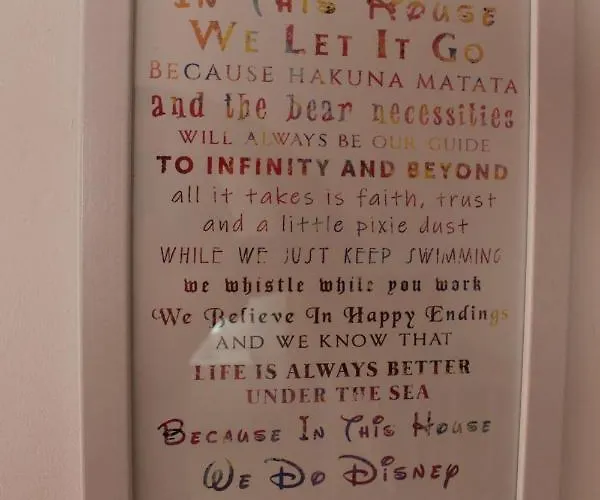 In This House
We Let It Go
BECAUSE HAKUNA MATATA
and the bear necessities
WILL ALWAYS BE OUR GUIDE
TO INFINITY AND BEYOND
all it takes is faith, trust
and a little pixie dust
WHILE WE JUST KEEP SWIMMING
we whistle while you work
We Believe In Happy Endings
AND WE KNOW THAT
LIFE IS ALWAYS BETTER
UNDER THE SEA
Because In This House
We Do Disney